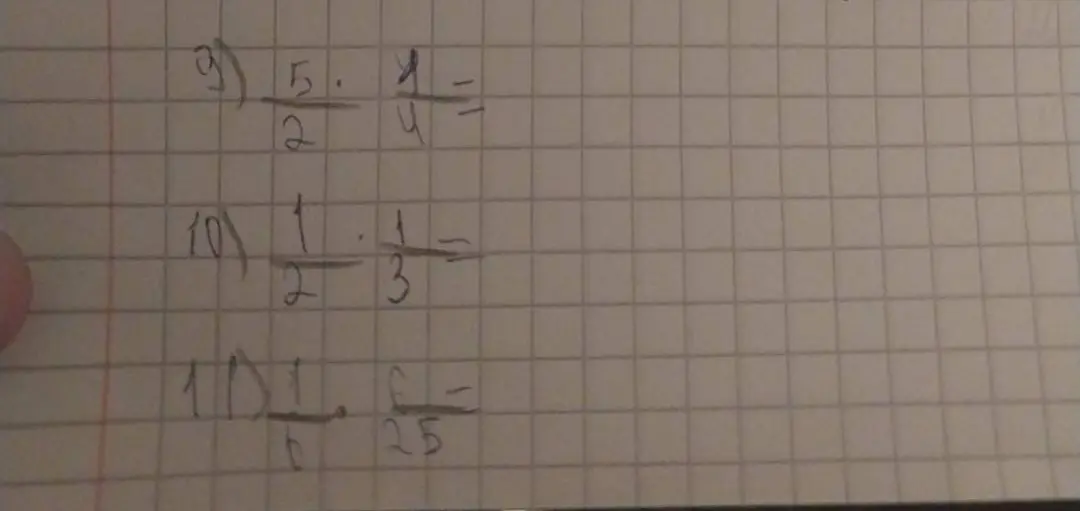 9) 5/2 · 1/4 =
10) 1/2 · 1/3 =
11) 1/ · /25 =